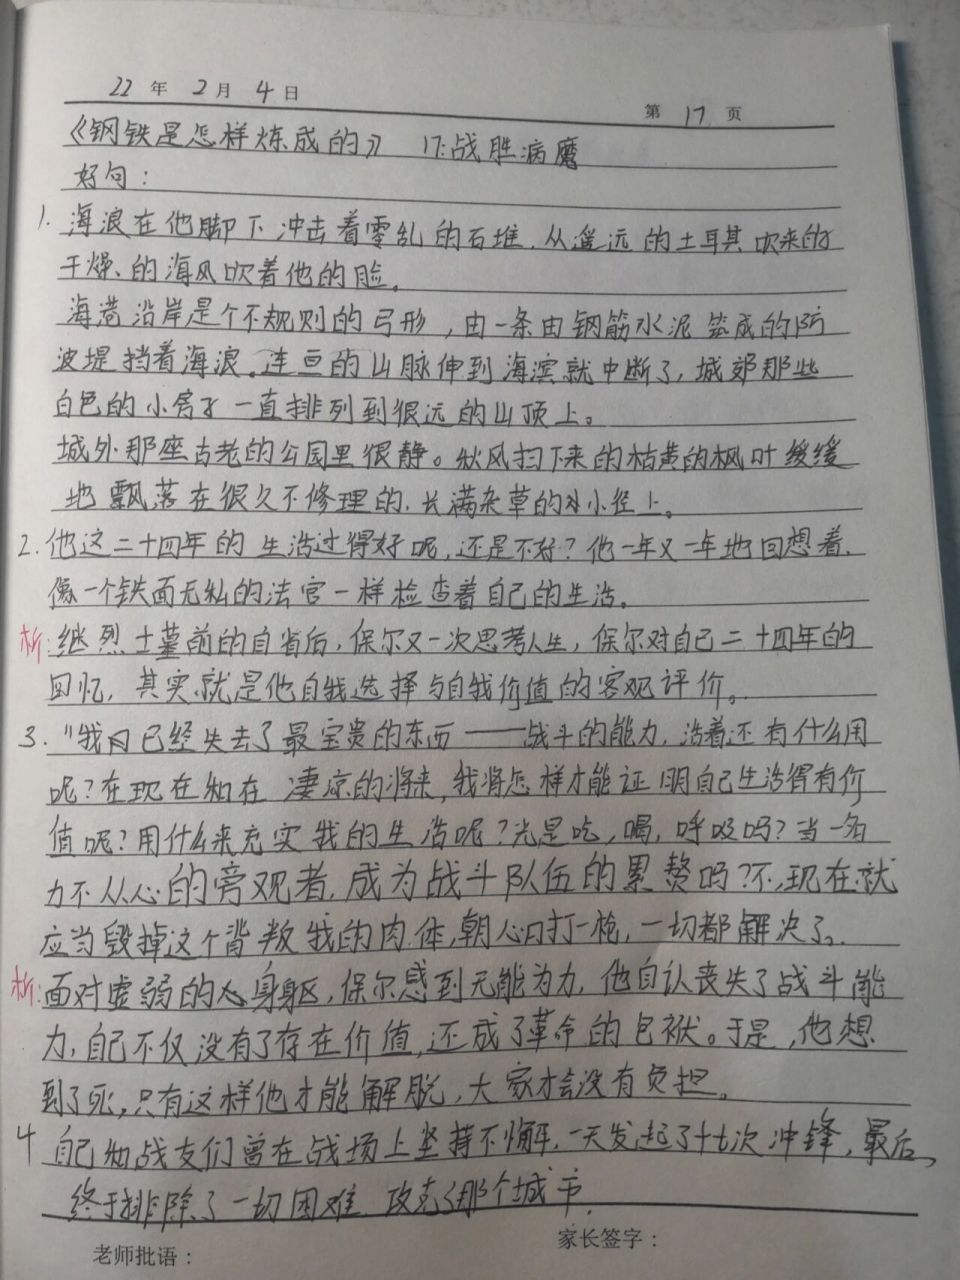 22 年 2 月 4 日
第 17 页
《钢铁是怎样炼成的》 17.战胜病魔
好句：
1. 海浪在他脚下冲击着零乱的石堆，从遥远的土耳其吹来的
干燥的海风吹着他的脸。
海港沿岸是个不规则的弓形，由一条由钢筋水泥筑成的防
波堤挡着海浪。连亘的山脉伸到海滨就中断了，城郊那些
白色的小房子一直排列到很远的山顶上。
城外那座古老的公园里很静。秋风扫下来的枯黄的枫叶缓缓
地飘落在很久不修理的，长满杂草的小径上。
2. 他这二十四年的生活过得好呢，还是不好？他一年又一年地回想着，
像一个铁面无私的法官一样检查着自己的生活。
析：继烈士墓前的自省后，保尔又一次思考人生，保尔对自己二十四年的
回忆，其实就是他自我选择与自我价值的客观评价。
3. “我已经失去了最宝贵的东西——战斗的能力，活着还有什么用
呢？在现在和在凄凉的将来，我将怎样才能证明自己生活得有价
值呢？用什么来充实我的生活呢？光是吃，喝，呼吸吗？当一名
力不从心的旁观者，成为战斗队伍的累赘吗？不，现在就
应当毁掉这个背叛我的肉体，朝心口打一枪，一切都解决了。
析：面对虚弱的身躯，保尔感到无能为力，他自认丧失了战斗能
力，自己不仅没有了存在价值，还成了革命的包袱。于是，他想
到了死，只有这样他才能解脱，大家才会没有负担。
4 自己和战友们曾在战场上坚持不懈，一天发起了十七次冲锋，最后，
终于排除了一切困难，攻克了那个城市.
老师批语：
家长签字：